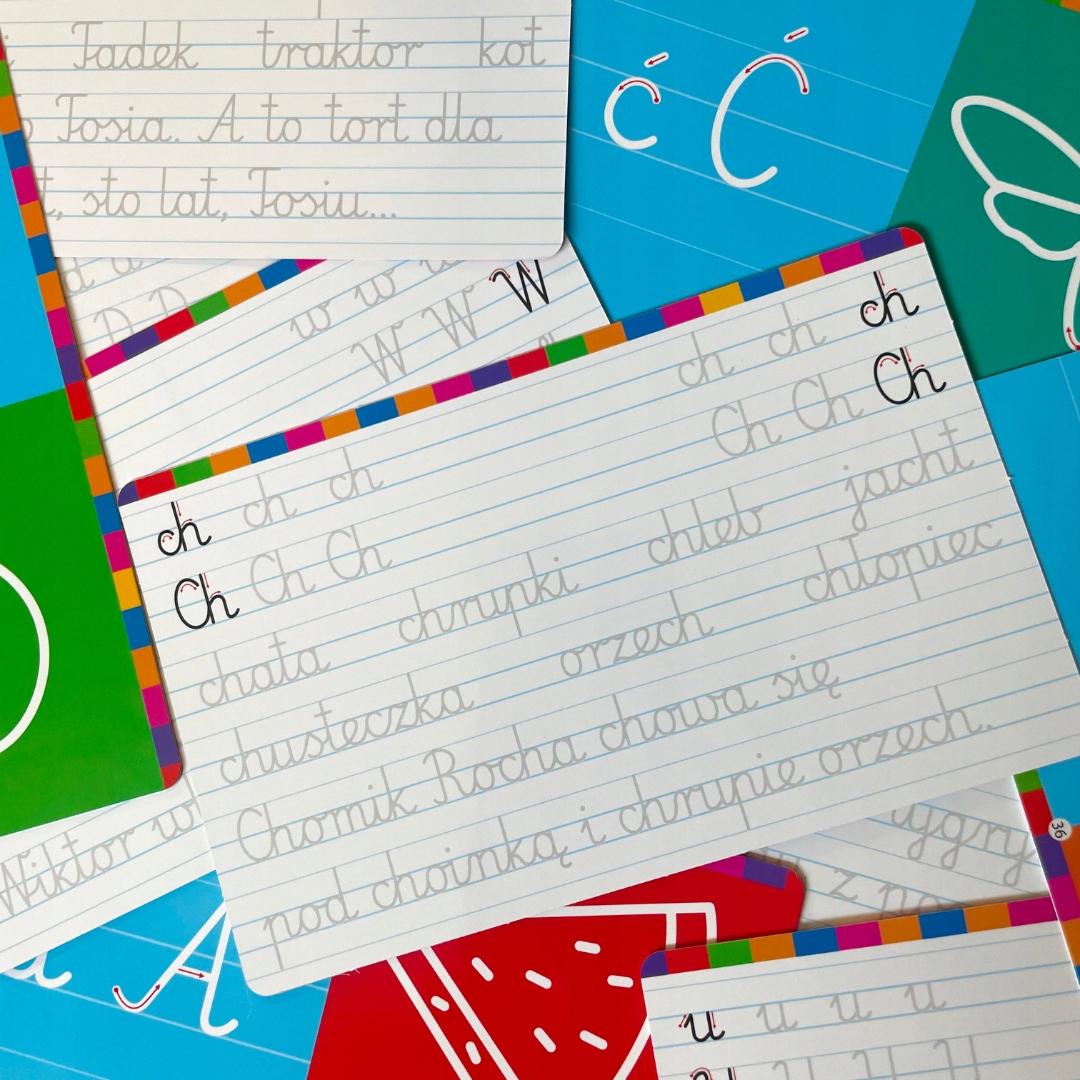 Tadek traktor kot
Tosia. A to tort dla
sto lat, Tosiu...
ć Ć
w w
W W W
ch ch ch ch ch ch
Ch Ch Ch Ch Ch Ch
chata chrupki chleb jacht
chusteczka orzech chłopiec
Chomik Rocha chowa się
pod choinką i chrupie orzech.
Wiktor w
A
36
u u u u